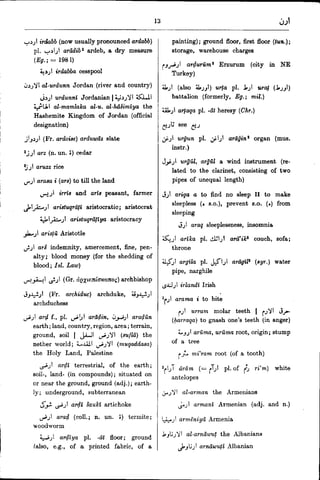 13
ارز
اردب irdabb (now usually pronounced ardabb)
pl. ارادب arādib² ardeb, a dry measure
(Eg.; = 198 l)
اردبة irdabba cesspool
الاردن al-urdunn Jordan (river and country)
اردني urdunnī Jordanian | المملكة الاردنية
الهاشمية al-mamlaka al-u. al-hāšimīya the
Hashemite Kingdom of Jordan (official
designation)
اردواز (Fr. ardoise) arduwāz slate
¹ارز arz (n. un. ة) cedar
²ارز aruzz rice
ارس arasa i (ars) to till the land
اريس irrīs and arīs peasant, farmer
ارستقراطي aristuqrāṭī aristocratic; aristocrat
ارستقراطية aristuqrāṭīya aristocracy
ارسطو arisṭū Aristotle
ارش arš indemnity, amercement, fine, penalty;
blood money (for the shedding of
blood; Isl. Law)
ارشمندريت (Gr. ἀρχιεπίσκοπος) archbishop
ارشيدوق (Fr. archiduc) archduke, ارشيدوقة
archduchess
ارض arḍ f., pl. اراض arāḍin, ارضون araḍūn
earth; land, country, region, area; terrain,
ground, soil | الارض السفلى (suflā) the
nether world; الارض المقدسة (muqaddasa)
the Holy Land, Palestine
ارضي arḍī terrestrial, of the earth;
soil-, land- (in compounds); situated on
or near the ground, ground (adj.); earthly;
underground, subterranean
ارضي شوكي arḍī šaukī artichoke
ارض araḍ (coll.; n. un. ة) termite;
woodworm
ارضية arḍīya pl. -āt floor; ground
(also, e.g., of a printed fabric, of a
painting); ground floor, first floor (tun.);
storage, warehouse charges
ارضروم arḍurūm² Erzurum (city in NE
Turkey)
ارطة (also اورطة) urṭa pl. ارط uraṭ (اورط)
battalion (formerly, Eg.; mil.)
ارطقة arṭaqa pl. -āt heresy (Chr.)
ارغن urḡun pl. اراغن arāḡin² organ (mus.
instr.)
ارغول urḡūl, arḡūl a wind instrument (related
to the clarinet, consisting of two
pipes of unequal length)
ارق ariqa a to find no sleep II to make
sleepless (ه s.o.), prevent s.o. (ه) from
sleeping
ارق araq sleeplessness, insomnia
اريكة arīka pl. ارائك arā'ik² couch, sofa;
throne
اركيلة argīla pl. اراكيل arāgīl² (syr.) water
pipe, narghile
ارلندي irlandī Irish
¹ارم arama i to bite
ارم urram molar teeth | حرق الارم
(ḥarraqa) to gnash one's teeth (in anger)
ارومة arūma, urūma root, origin; stump
of a tree
مئرم mi'ram root (of a tooth)
²آرام ārām (= أرآم pl. of رئم ri'm) white
antelopes
الارمن al-arman the Armenians
ارمني armanī Armenian (adj. and n.)
ارمينيا armīniyā Armenia
الارناؤوط al-arnāwuṭ the Albanians
ارناؤوطي arnāwuṭī Albanian